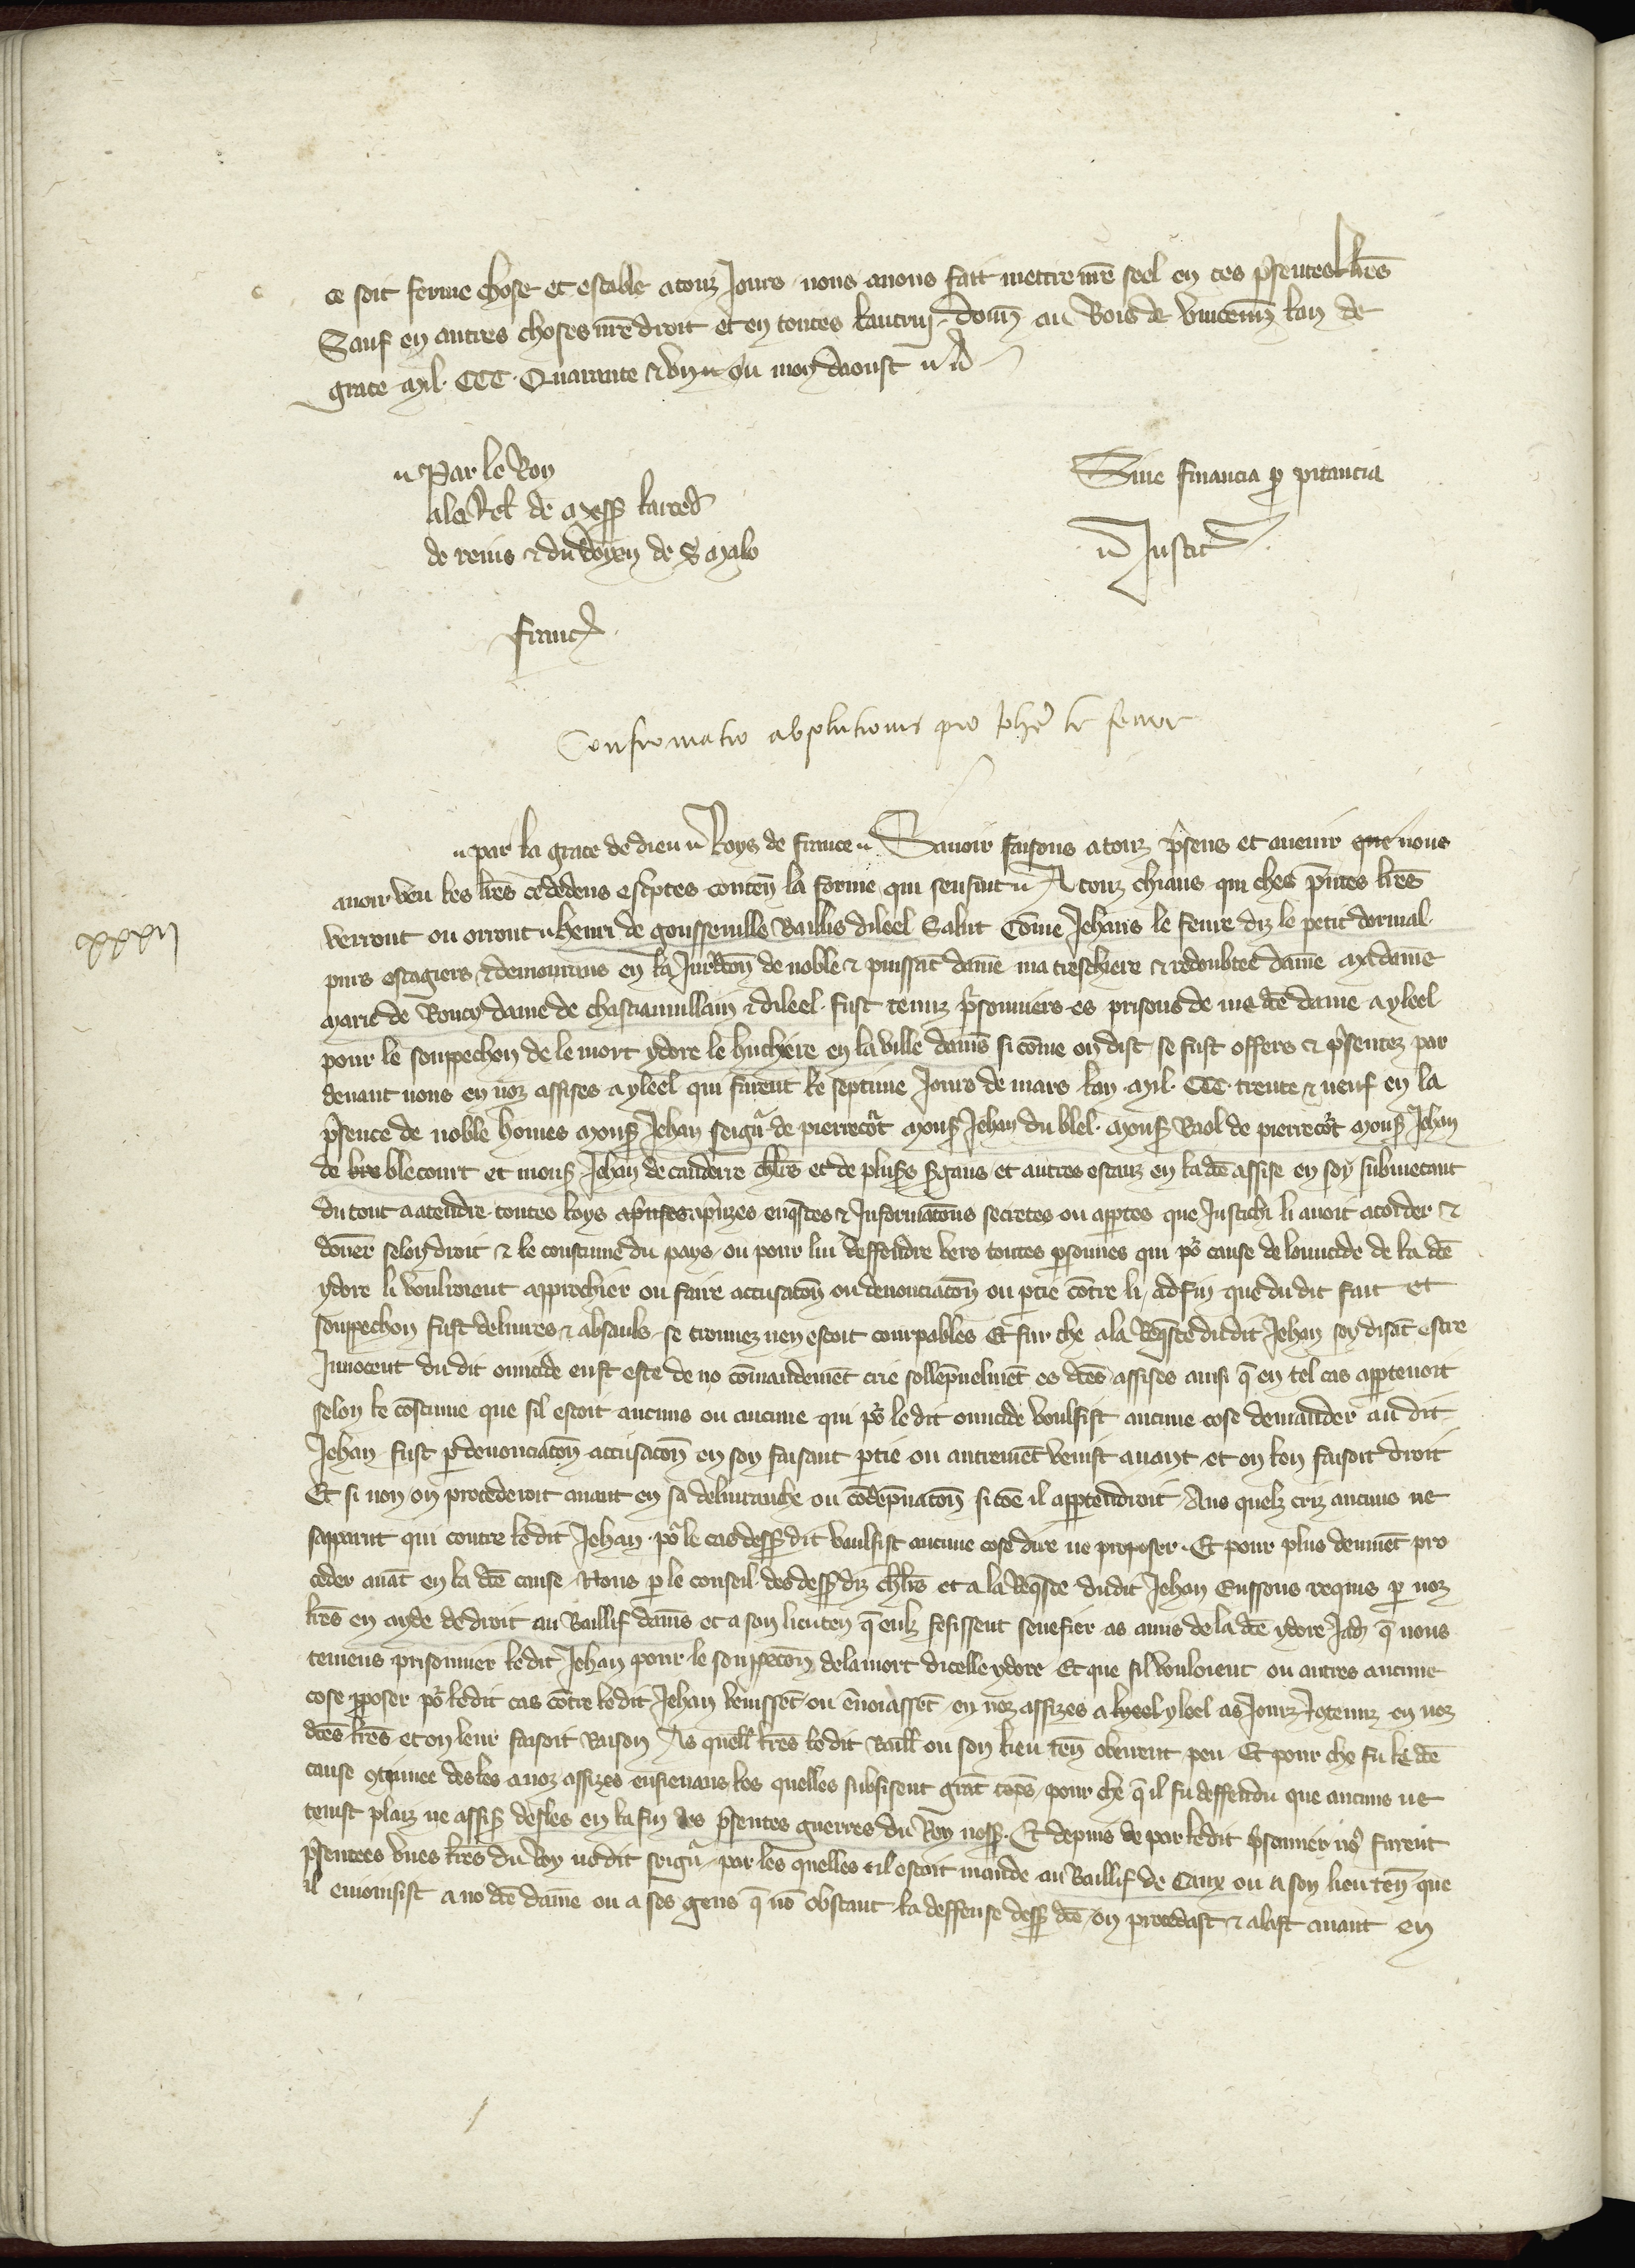 ce soit ferme chose et estable a touz jours nous avons fait mettre nr̃e seel en ces p̃sentes lr̃es
Sauf en autres choses nr̃e droit et en toutes lautruy. Donñ au Bois de Vincennes lan de
grace mil. CCC. Quarante & un ou moys daoust
Par le Roy
a la Rel̃ de
de reins & du doyen de S malo
Sine financia p̱ pitancia
Justic̃
franc̃
Confirmatio absolutionis pro Joh̃e le fevre
xxxij
par la grace de dieu Roys de france Savoir faisons a touz p̃sens et avenir que nous
avoir veu les lr̃es ci dedens esc̃ptes conteñ la forme qui sensuit A touz chiaus qui ches p̃ntes lr̃es
verront ou orront henri de goussenville Baillis dileel Salut Com̃e Jehans le fevre diz le petit dormal
puis estagiers & demourans en la Jurid̃con de noble & puissãt dam̃e ma treschiere & redoubtee dam̃e ma dam̃e
marie de Roucy dame de chastiauvillain & dileel. fust tenuz p̃sonniers es prisons de me dc̃e dame a yleel
pour le souppechon de le mort ydore le huchere en la ville si com̃e on dist se fust offers & p̃sentez par
devant nous en noz assises a yleel qui furent le septime jours de mars lan mil. CCC. trente & neuf en la
p̃sence de noble homes mons̃ Jehan seign̄ de pierrecõt mons̃ Jehan du blel. mons̃ Raol de pierrecõt mons̃ Jehan
de blecourt et mons̃ Jehan de cauderre chl̃rs et de plus̃s s̃gans et autres estanz en la dc̃e assise en soy submetant
du tout a atendre toutes loys ap̃rizes enq̃stes & Informac̃ons secretes ou app̱tes que Justiche li avoit acorder &
don̄er selon droit & le coustume du pays ou pour lui deffendre vers toutes p̱sonnes qui po᷑ cause de lomicide de la dc̃e
ydore li voulroient approchier ou faire accusac̃on ou denonciac̃on ou p̱tie cõtre li, ad fin que du dit fait et
souppechon fust delivres & absauls se trouvez nen estoit courpables Et sur che a la Req̃ste dudit Jehan soy disãt estre
Innocent du dit omicide eust este de no com̄andem̃t crie sollẽpnelmẽt es dc̃es assises ainsi q̃ en tel cas app̱tenoit
selon le coustume que sil estoit aucuns ou aucune qui po᷑ le dit omicide voulsist aucune cose demander au dit
Jehan fust p̱ denonciac̃on accusac̃on en soy faisant p̱tie ou autremẽt venist avant et on len faisoit droit
Et si non on procederoit avant en sa delivranche ou cõdẽpnac̃on si cõe il app̱tendroit. Aus quelz criz aucuns ne
sapparut qui contre ledit Jehan po᷑ le cas dess̃ dit vaulsist aucune cose dire ne proposer. Et pour plus deuuẽt pro
ceder avãt en la dc̃e cause Nous p̱ le conseil des dess̃ diz chl̃rs et a la Req̃ste dudit Jehan Eussons requis p̱ noz
lr̃es en ayde de droit au Baillif et a son lieuteñ q̃ eulz fesissent senefier as amis de la dc̃e ydore Jadiz q̃ nous
teniens prisonnier ledit Jehan pour le souppecon de la mort dicelle ydore Et que sil vouloient ou autres aucune
cose p̱poser po᷑ ledit cas cõtre ledit Jehan venissẽt ou ẽnoiassẽt en noz assizes a yleel as Jourz en noz
dc̃es lr̃es et on leur faisoit Raison As quell̃ lr̃es le dit Baill̃ ou son lieu teñ obeirent peu Et pour che fu le dc̃e
cause ꝯtinuee desles a noz assizes ensievans, les quelles subsisent grãt tẽps pour che q̃ il fu deffendu que aucuns ne
tenist plaiz ne assis̃ desles en la fin des p̃sentes guerres du Roy nos̃. Et depuis de par ledit p̃sonnier nõ furent
p̃sentees unes lr̃es du Roy nodit seign̄ par les quelles il estoit mande au Baillif de Caux ou a son lieu teñ que
il a no dc̃e dam̃e ou a ses gens q̃ nõ obstant la deffense dess̃ dc̃e on procedast & alast avant en